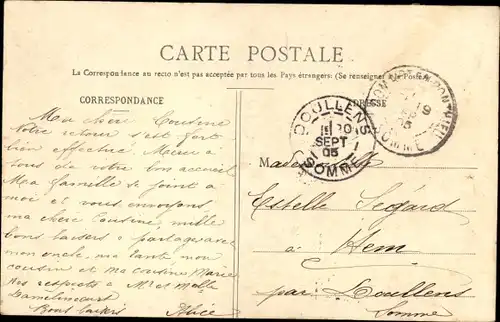 CARTE POSTALE
La Correspondance au recto n'est pas acceptée par tous les Pays étrangers: (Se renseigner à la Poste)
CORRESPONDANCE
ADRESSE
Ma chère Cousine
Notre retour s'est fort
bien effectué. Merci à
tous de votre bon accueil
Ma famille se joint à
moi et vous envoyons,
ma chère Cousine mille
bons baisers à partager avec
mon oncle, ma tante mon
cousin et ma cousine Marie
Mes respects à Mr et Melle
Damelincourt
Bons baisers Alice
DOULLENS
20
SEPT
05
SOMME
SOMME
Mademoiselle
Estelle Segard
à Hem
par Doullens
Somme